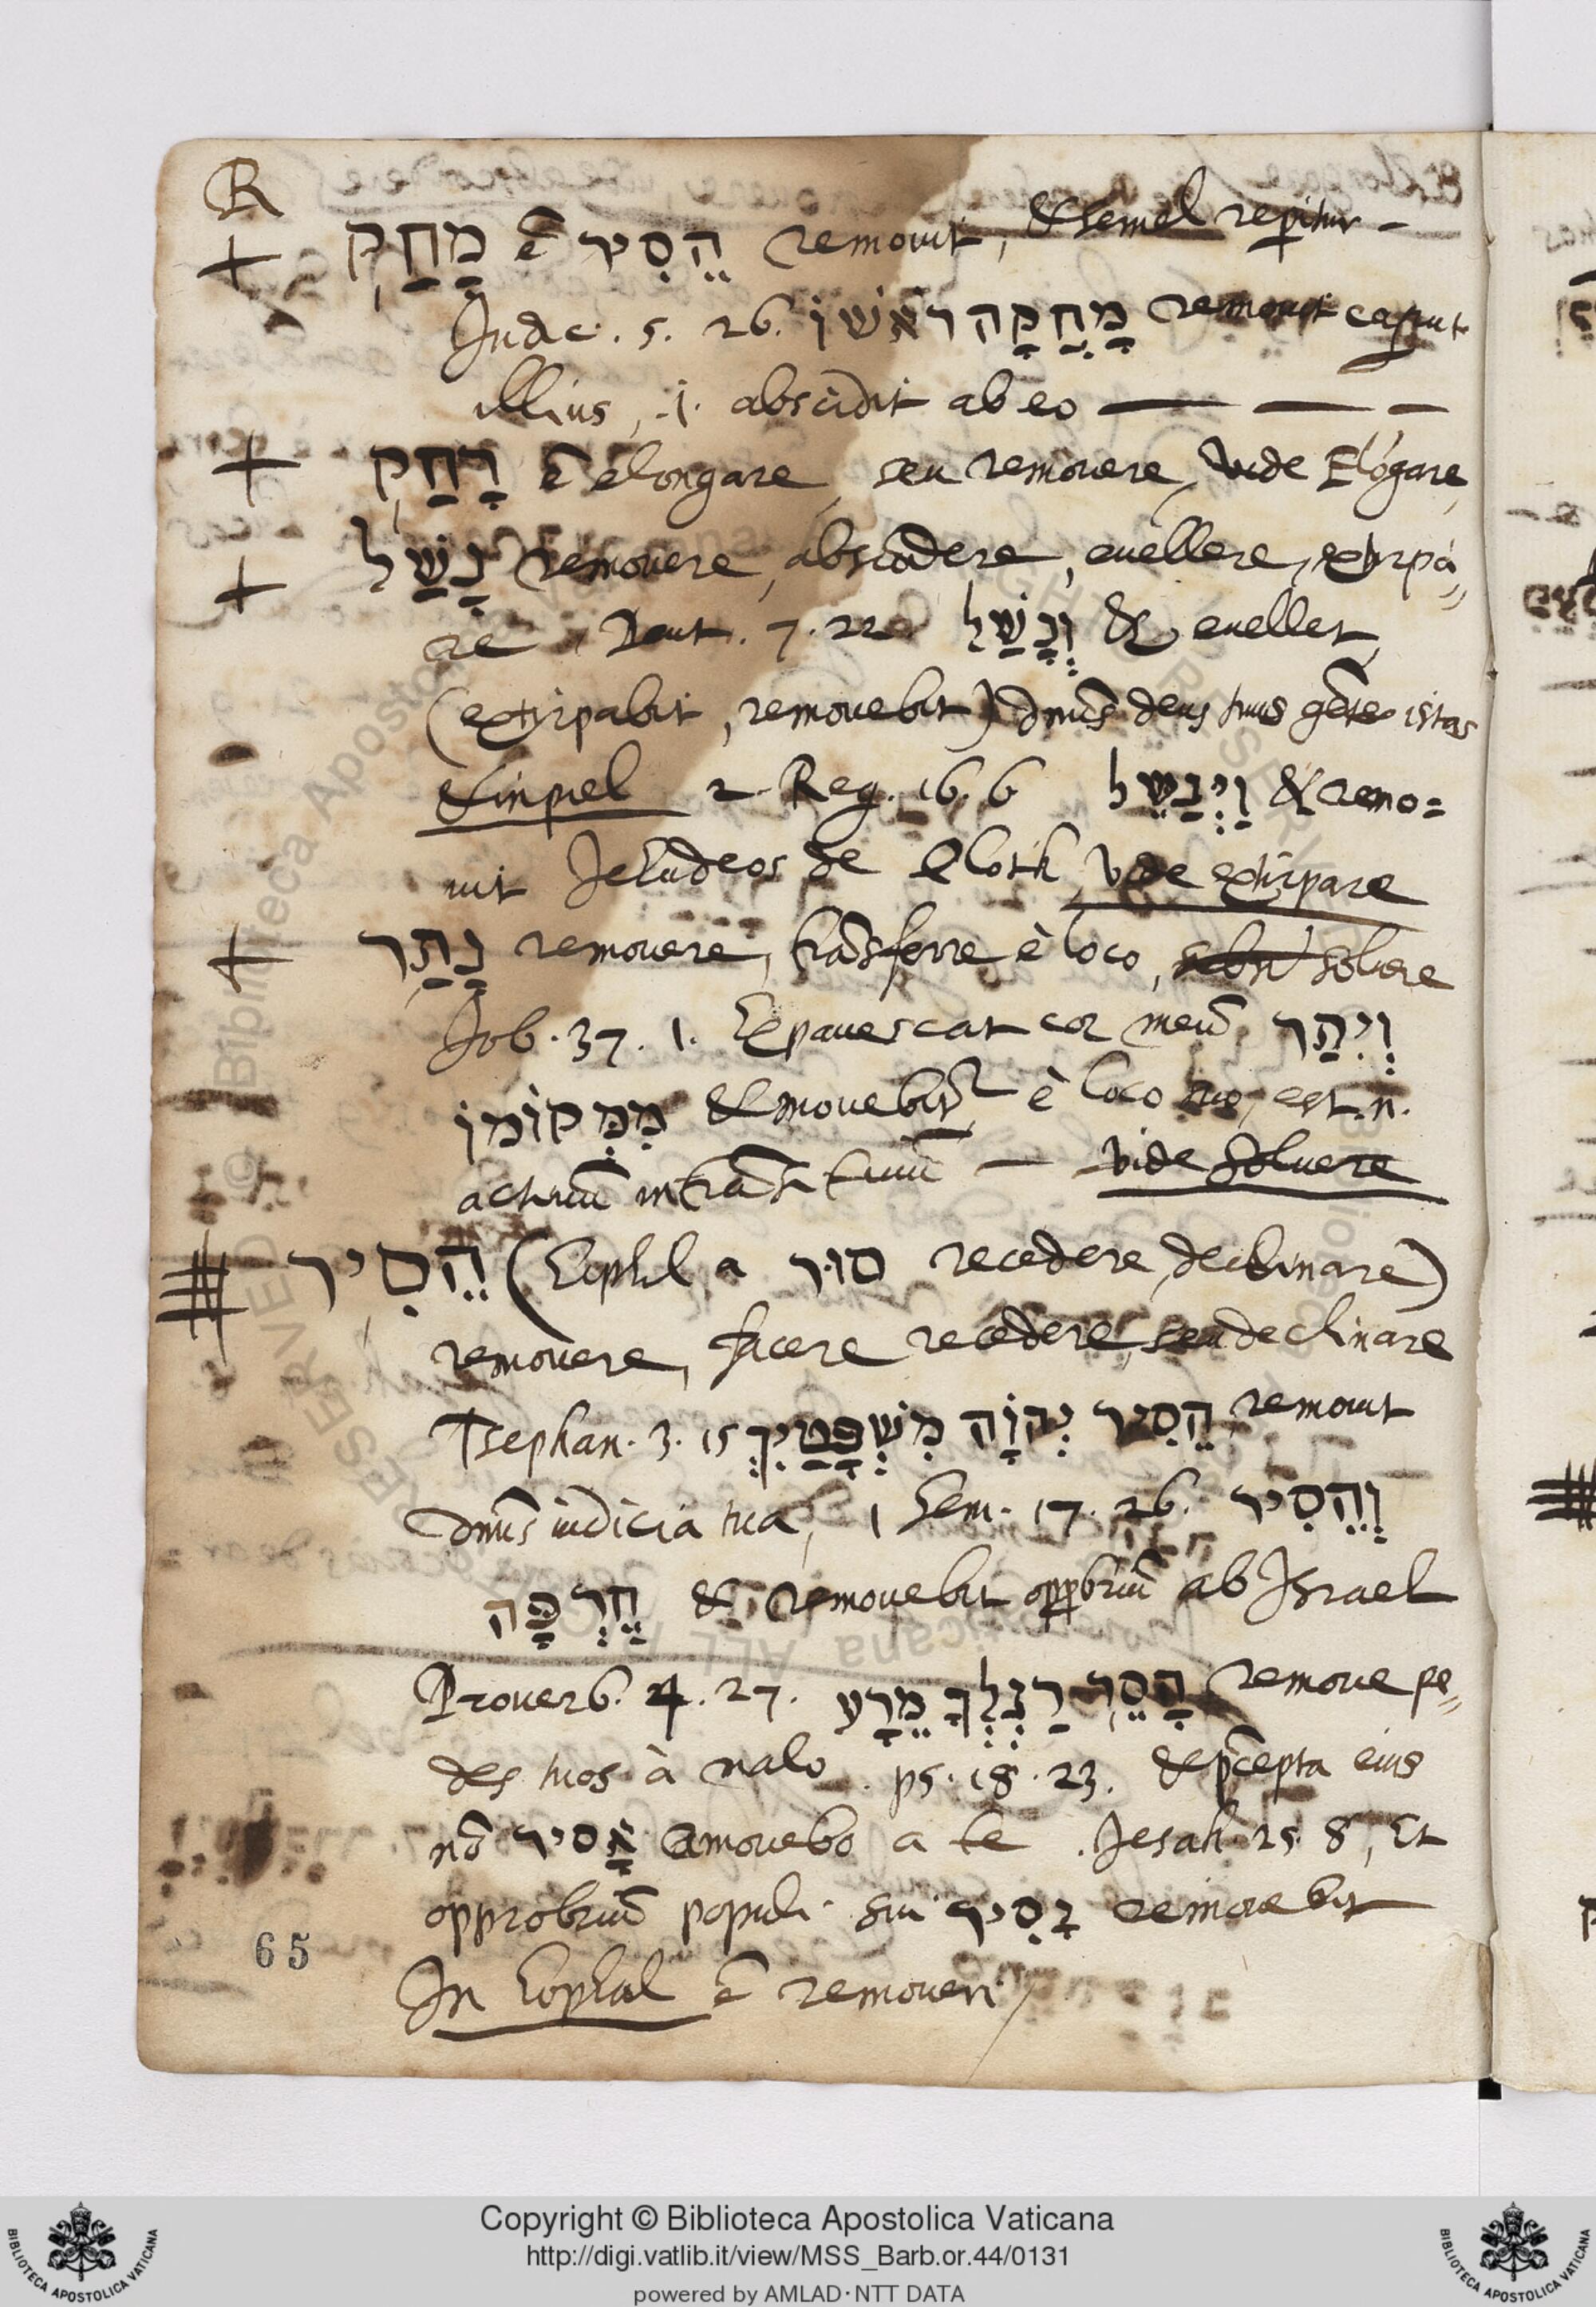 R
+ מָחַק ē הֵסִיר remouit, & semel repitur -
Judic. 5. 26. מָחֲקָה רֹאשׁוֹ remouit caput
illius, .i. abscidit ab eo — — —
+ רָחַק ē elongare, seu remouere, vide Elōgare,
+ נָשַׁל remouere, abscidere, euellere, extirpa„
re, Deut. 7. 22 וְנָשַׁל & euellet,
(extirpabit, remouebit) dnūs deus tuus gētes istas
& in piel 2. Reg. 16. 6 וַיְנַשֵּׁל & remo=
uit Jehudeos de Eloth, vide extirpare
+ נָתַר remouere, trāsferre è loco, soluere
Job. 37. 1. Expauescat cor meū וְיִתַּר
מִמְּקוֹמוֹ & mouebit è loco suo, est n.
actiuū intrāsitiuū — vide Soluere
הֵסִיר (Hiphil a סוּר recedere, declinare)
remouere, facere recedere, seu declinare
Tsephan. 3. 15 הֵסִיר יְהוָֹה מִשְׁפָּטַיִךְ, remouit
dnūs iudicia tua, 1 Sem. 17. 26. וְהֵסִיר
חֶרְפָּה & remouebit opprobriū ab Israel
Prouerb. 4. 27. הָסֵר רַגְלְךָ מֵרָע remoue pe„
des tuos à malo. ps. 18. 23. & p̄cepta eius
nō אָסִיר amouebo a te. Jesah. 25. 8, Et
opprobriū populi sui יָסִיר remouebit
In hophal ē remoueri
65
Copyright © Biblioteca Apostolica Vaticana
http://digi.vatlib.it/view/MSS_Barb.or.44/0131
powered by AMLAD · NTT DATA
BIBLIOTECA APOSTOLICA VATICANA
BIBLIOTECA APOSTOLICA VATICANA